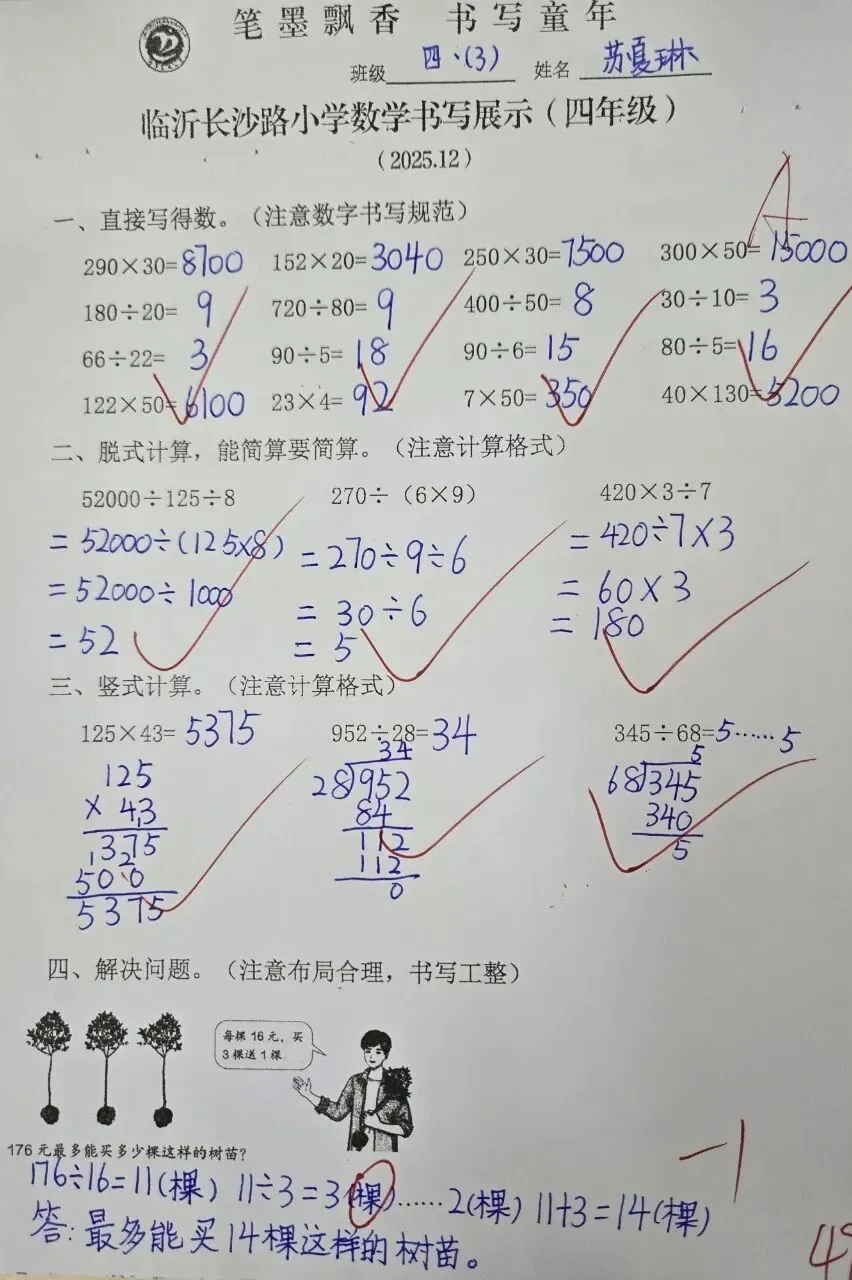 笔墨飘香 书写童年
班级 四·(3) 姓名 苏夏琳
临沂长沙路小学数学书写展示（四年级）
（2025.12）
A
一、直接写得数。（注意数字书写规范）
290×30=8700 152×20=3040 250×30=7500 300×50=15000
180÷20=9 720÷80=9 400÷50=8 30÷10=3
66÷22=3 90÷5=18 90÷6=15 80÷5=16
122×50=6100 23×4=92 7×50=350 40×130=5200
二、脱式计算，能简算要简算。（注意计算格式）
52000÷125÷8 270÷（6×9） 420×3÷7
=52000÷(125×8) =270÷9÷6 =420÷7×3
=52000÷1000 =30÷6 =60×3
=52 =5 =180
三、竖式计算。（注意计算格式）
125×43=5375 952÷28=34 345÷68=5……5
34 5
125 28)952 68)345
×43 84 340
375 112 5
500 112
5375 0
四、解决问题。（注意布局合理，书写工整）
每棵16元，买
3棵送1棵
176元最多能买多少棵这样的树苗？
-1
176÷16=11(棵) 11÷3=3(棵)……2(棵) 11+3=14(棵)
答：最多能买14棵这样的树苗。